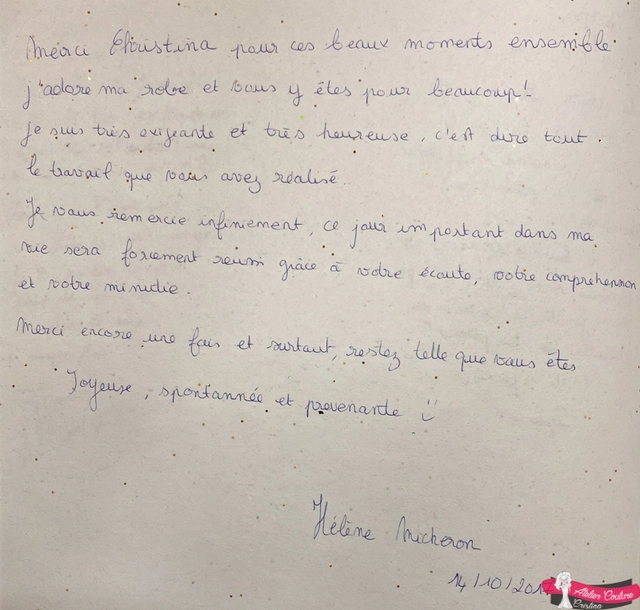 Merci Christina pour ces beaux moments ensemble.
j'adore ma robe et vous y êtes pour beaucoup!
Je suis très exigeante et très heureuse, c'est dire tout.
le travail que vous avez réalisé..
Je vous remercie infiniement, ce jour important dans ma
vie sera forcement reussi grâce à votre écoute, votre comprehension
et votre minutie.
Merci encore une fois et surtout, restez telle que vous êtes
Joyeuse, spontannée et prevenante
Hélène Micheron
14/10/201
Atelier Couture
Cristina